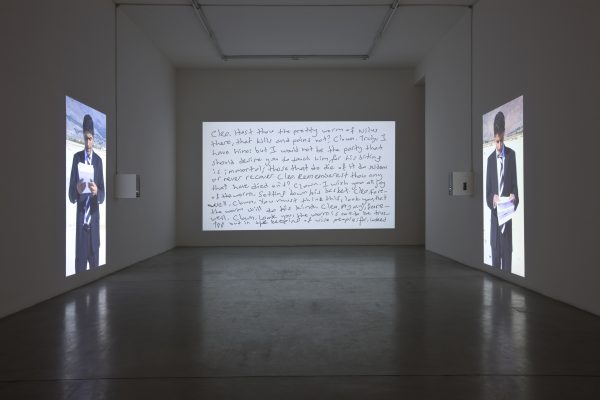 Cleo. Hast thou the pretty worm of Nilus
there, that kills and pains not? Clown. Truly, I
have him: but I would not be the party that
should desire you to touch him, for his biting
is immortal; those that do die of it do seldom
or never recover. Cleo. Rememberest thou any
that have died on't? Clown. I wish you all joy
of the worm. Setting down his basket Cleo. Fare-
well. Clown. You must think this, look you, that
the worm will do his kind. Cleo. Ay, ay; fare-
well. Clown. Look you, the worm is not to be trus-
ted but in the keeping of wise people; for, indeed